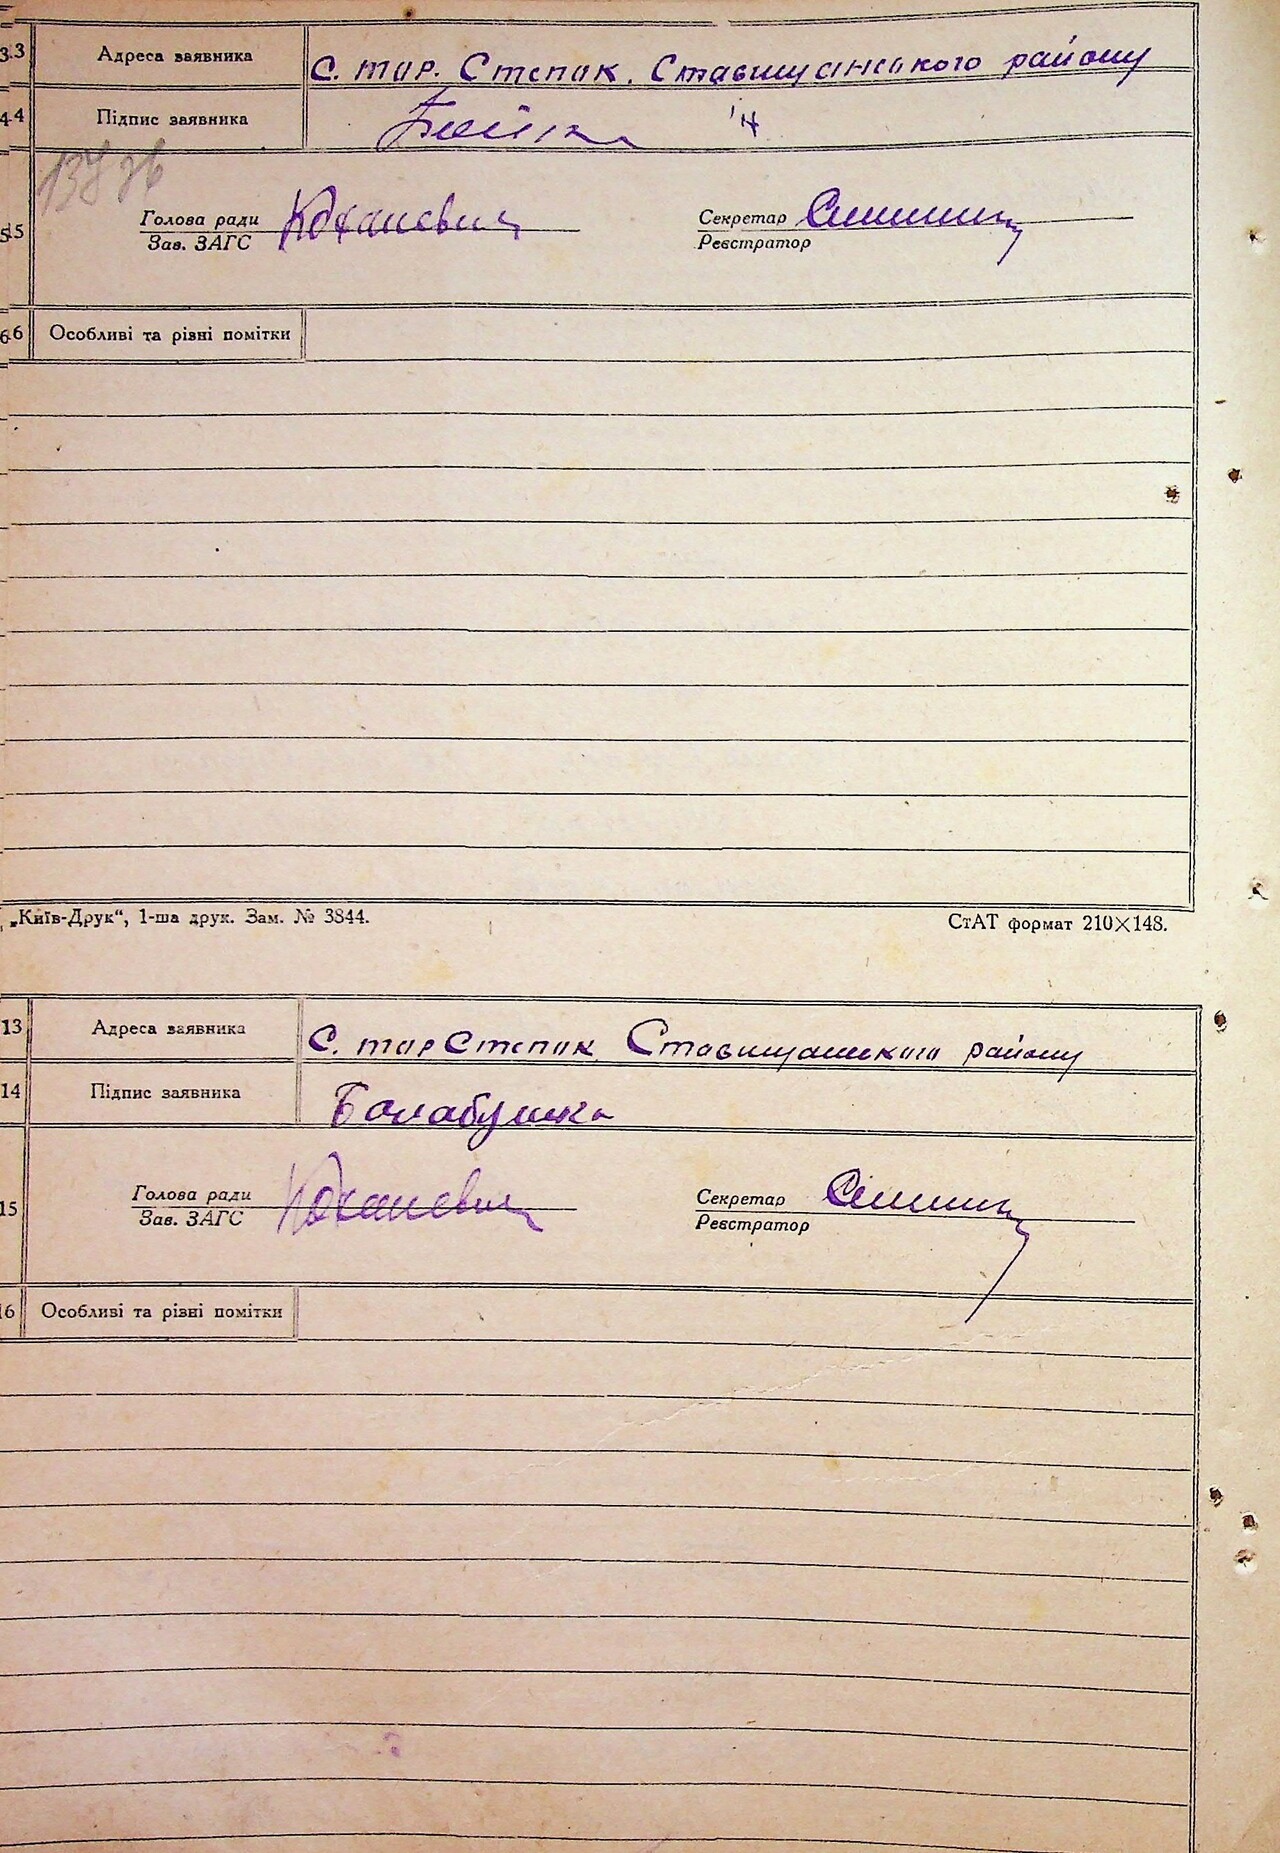 3.3 Адреса заявника С. тар. Степок. Ставищанського району
4.4 Підпис заявника Бойко
5.15 Голова ради Коханевич Секретар
Зав. ЗАГС Реєстратор
6.6 Особливі та рівні помітки
„Київ-Друк“, 1-ша друк. Зам. № 3844. СтАТ формат 210×148.
13 Адреса заявника С. тар Степок Ставищанського району
14 Підпис заявника Балабушка
15 Голова ради Коханевич Секретар
Зав. ЗАГС Реєстратор
16 Особливі та рівні помітки